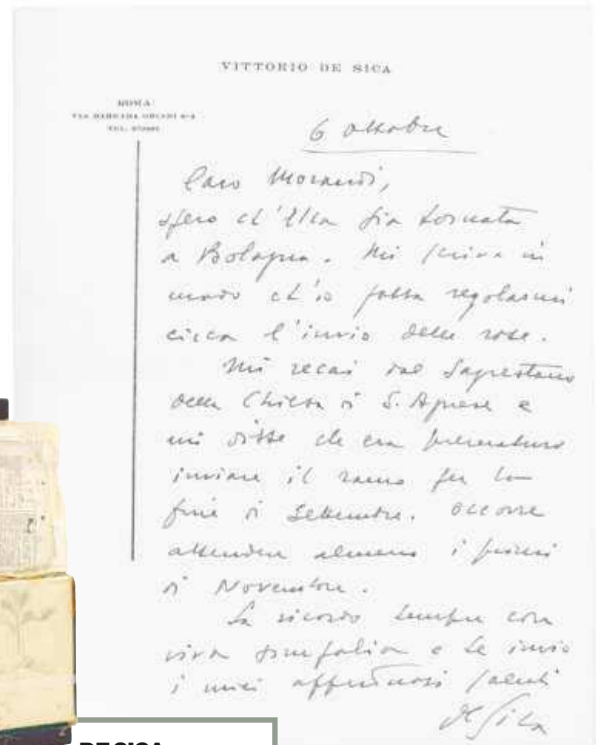 VITTORIO DE SICA
ROMA
VIA BARNABA ORIANI
TEL.
6 ottobre
Caro Morandi,
spero ch'Ella sia tornata
a Bologna. Mi scriva in
modo ch'io possa regolarmi
circa l'invio delle rose.
Mi recai dal Sagrestano
della Chiesa di S. Agnese e
mi disse che era prematuro
inviare il ramo per la
fine di Settembre. Occorre
attendere almeno i primi
di Novembre.
La ricordo sempre con
viva simpatia e Le invio
i miei affettuosi saluti
De Sica
DE SICA